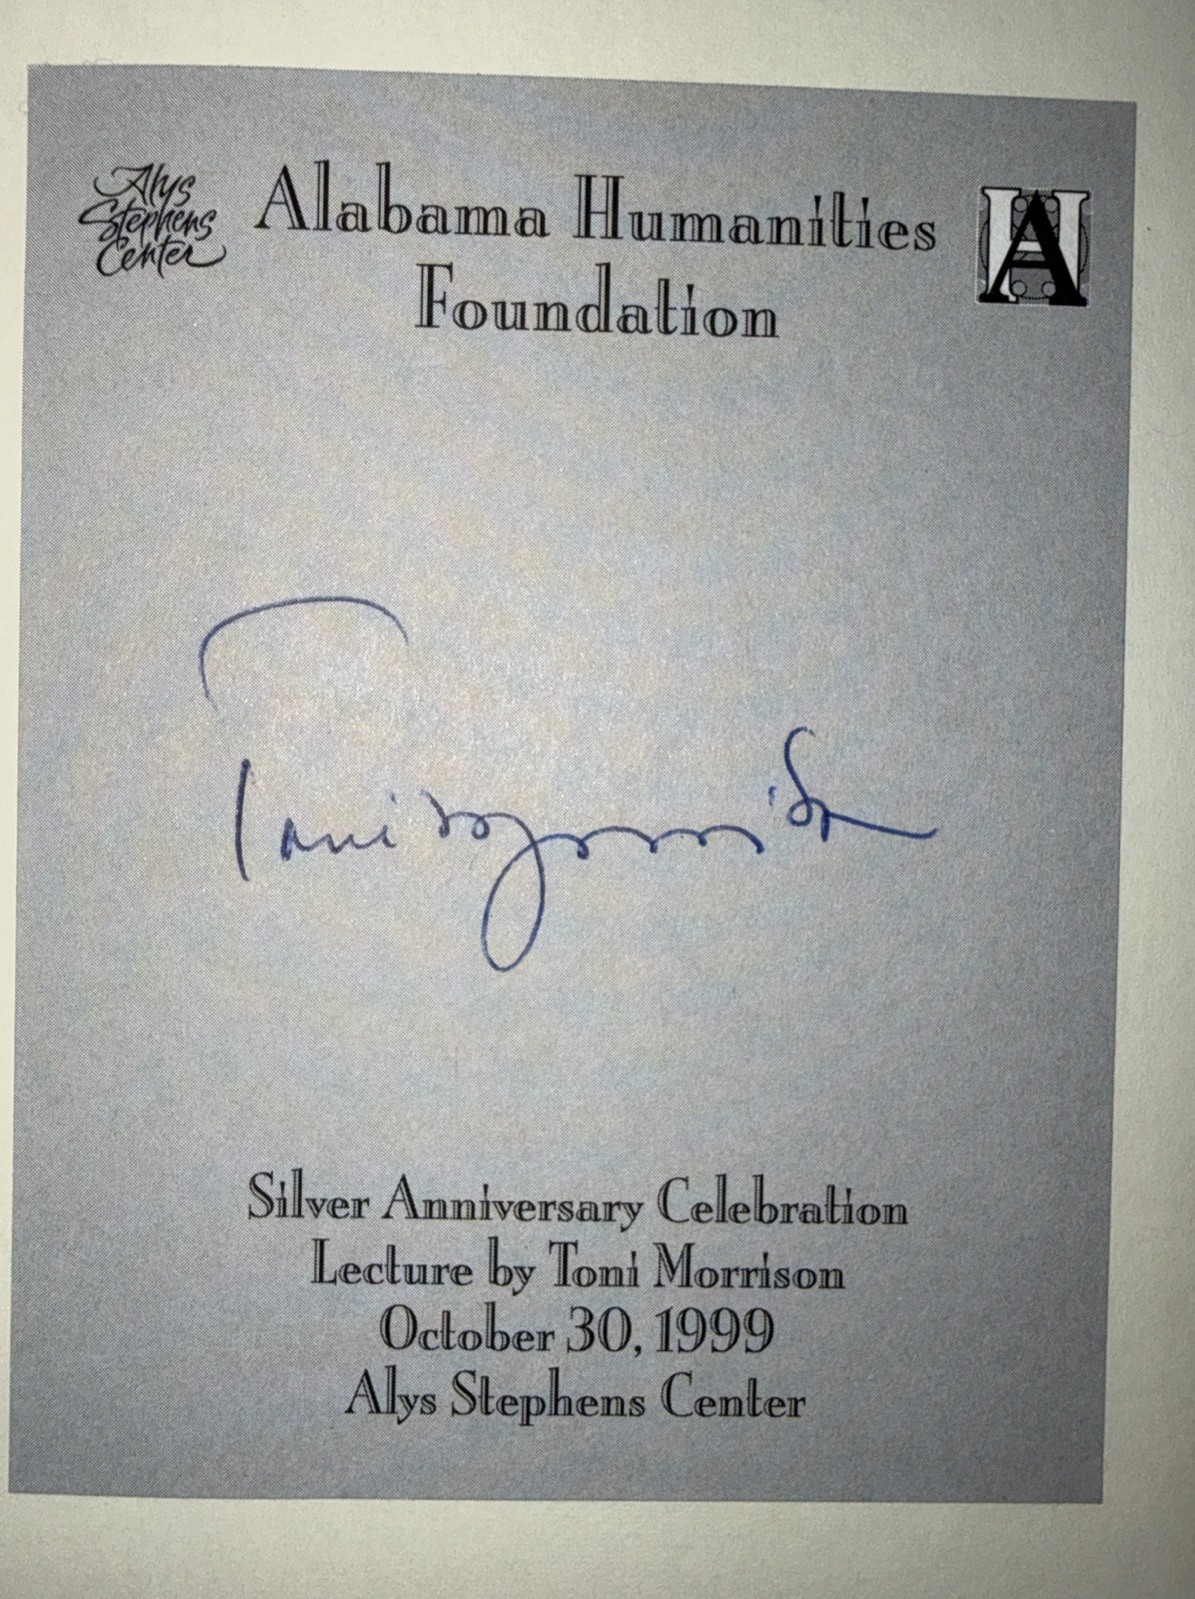 Alys
Stephens
Center
Alabama Humanities
Foundation
Toni Morrison
Silver Anniversary Celebration
Lecture by Toni Morrison
October 30, 1999
Alys Stephens Center